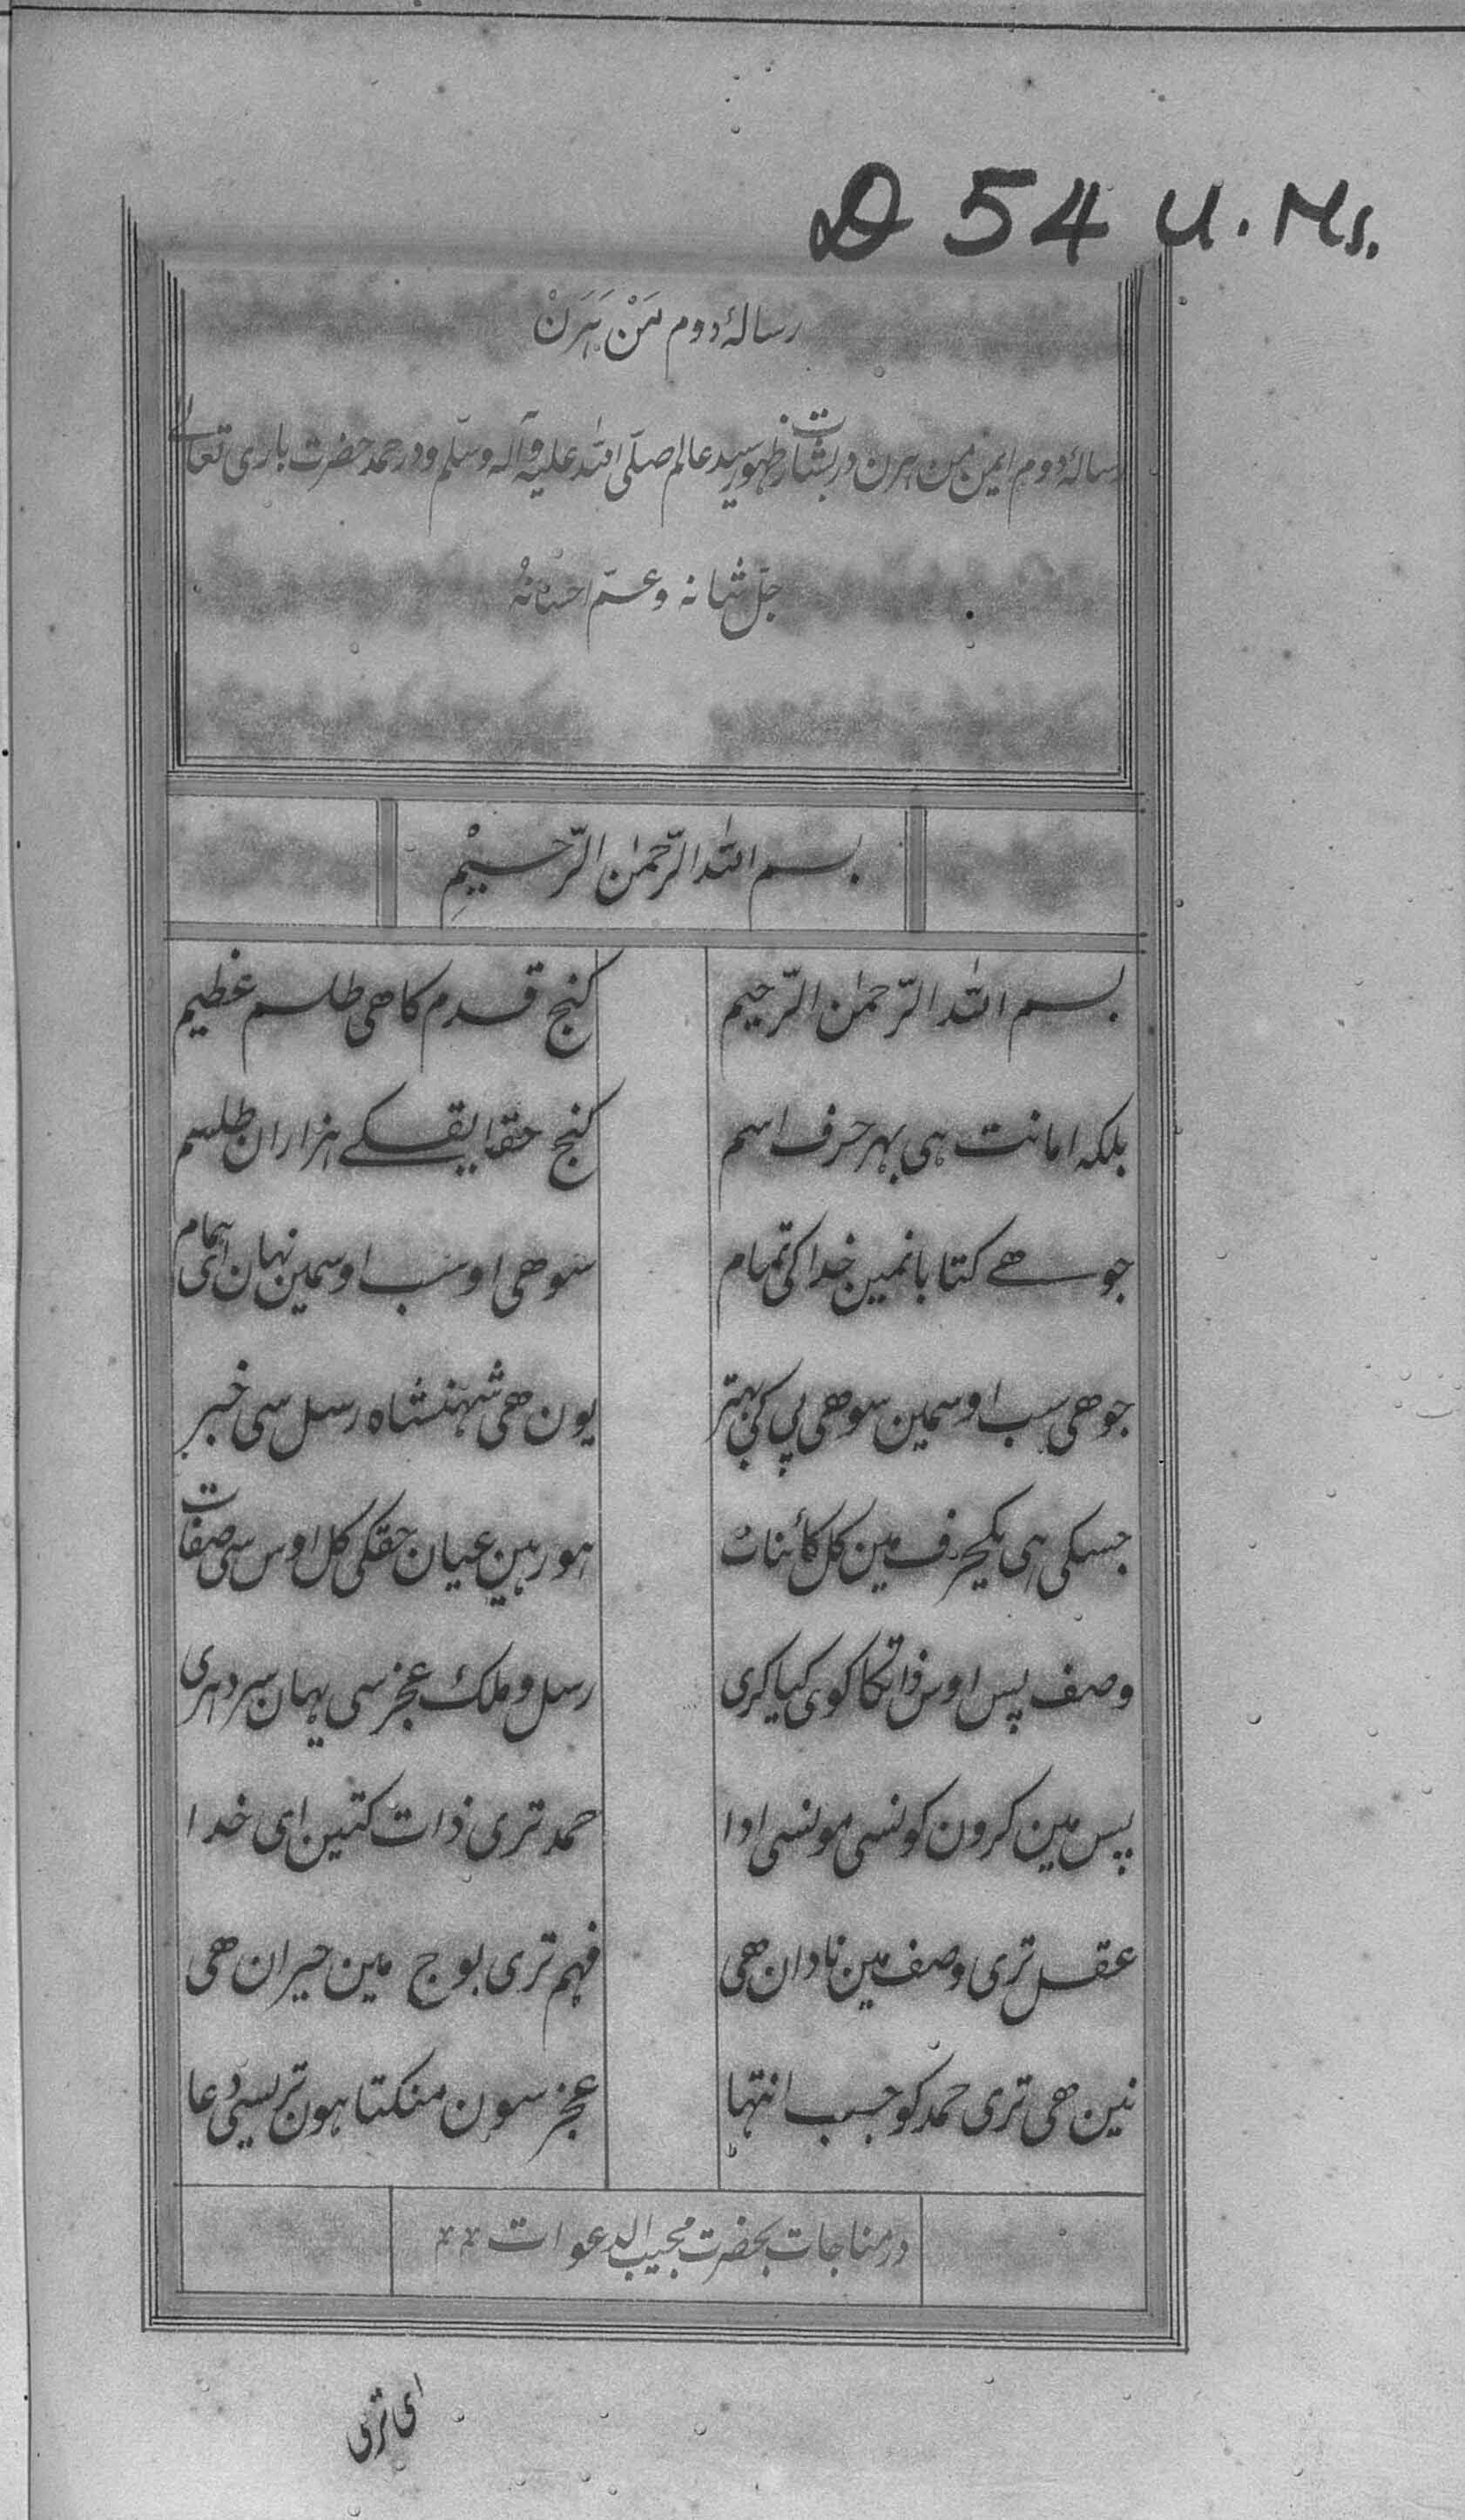 D 54 U. Ms.
رسالۂ دوم مَنْ ہَرَنْ
رسالۂ دوم ایمن من ہرن در بشارت ظہور سید عالم صلّی اللہ علیہ وآلہ وسلّم و در حمد حضرت باری تعالے
جلّ شانہ و عمّ احسانہُ
بسم اللہ الرّحمٰن الرّحیْمِ
بسم اللہ الرّحمٰن الرّحیم کنج قدم کا ھی طلسم عظیم
بلکہ امانت ہی بہر حرف اسم کنج حقایقکے ہزاران طلسم
جو ھے کتابانمین خدا کی تمام سو ھی او سب اوسمین نہان ای ہمام
جو ھی سب اوسمین سو ھی بی کی بہتر یون ھی شہنشاہ رسل سی خبر
جسکی ہی یکحرف مین کل کائنات ہور ہین عیان حقکی کل اوس سی صفات
وصف پس اوس ذاتکا کوی کیا کری رسل و ملک عجز سی یہان سر دہری
پس مین کرون کونسی مونسی ادا حمد تری ذات کتین ای خدا
عقل تری وصف مین نادان ھی فہم تری بوج مین حیران ھی
نین ھی تری حمد کو جب انتہا عجز سون منکتا ہون تریسیتی دعا
در مناجات بحضرت مجیب الدعوات
ای تری